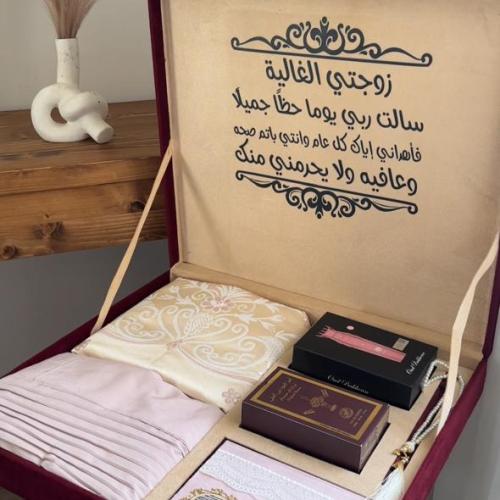 زوجتي الغالية
سالت ربي يوما حظاً جميلا
فأهداني إياك كل عام وانتي باتم صحه
وعافيه ولا يحرمني منك
Oud Bukhoor